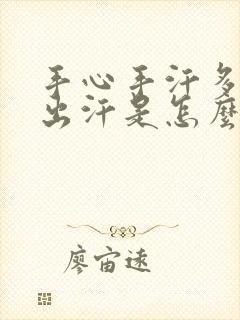 手心手汗多
出汗是怎麼
廖宙遠